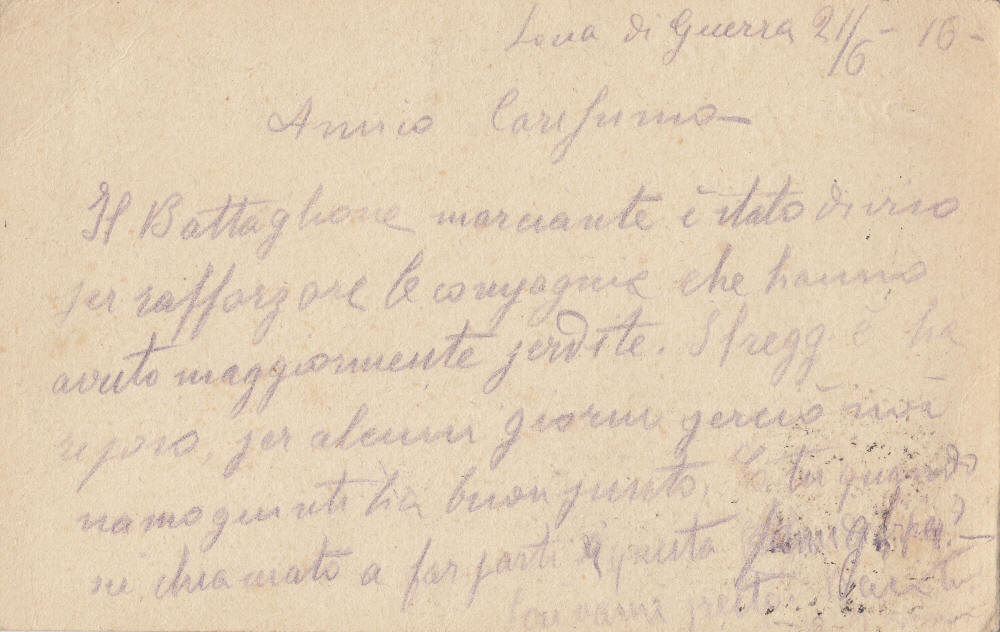 Zona di Guerra 21/6 - 16 -
Amico Carissimo
Il Battaglione marciante è stato diviso
per rafforzare le compagnie che hanno
avuto maggiormente perdite. Il regg. è ha
riposo, per alcuni giorni perciò noi
siamo giunti ha buon punto. E tu quando
sei chiamato a far parti questa famiglia?
presto